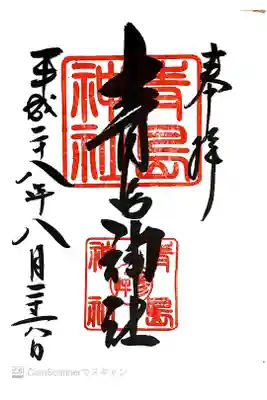 奉拝
青島神社
青島
神社
青島
神社
平成二十八年八月二十六日
CS CamScannerでスキャン